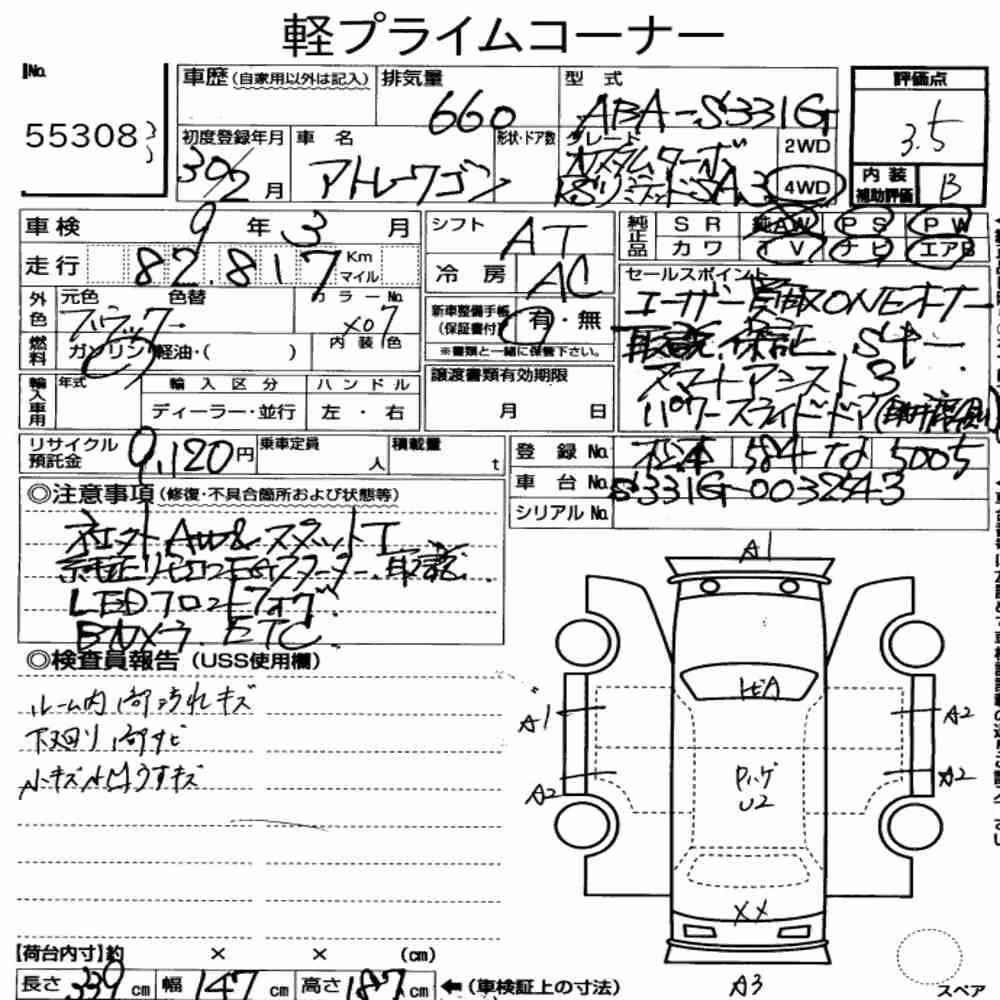 軽プライムコーナー
No.
55308
車歴(自家用以外は記入)
排気量
660
型 式
ABA-S331G
評価点
3.5
初度登録年月
30/2 月
車 名
アトレーワゴン
形状・ドア数
グレード
カスタムターボ
RSリミテッドSA3
2WD
4WD
内装補助評価
B
車検 9 年 3 月
シフト AT
純正品
S R 純AW P S P W
カワ T V ナビ エアB
走行 82,817 Km マイル
冷房 AC
セールスポイント
ユーザー買取ONEオーナー
取説.保証.Sキー
スマートアシスト3
パワースライドドア
外色
元色 色替
ブラック
カラーNo.
X07
内装色
燃料
ガソリン 軽油・( )
新車整備手帳(保証書付)
有・無
※書類と一緒に保管下さい。
輸入車用
年式
輸入区分
ディーラー・並行
ハンドル
左 ・ 右
譲渡書類有効期限
月 日
リサイクル預託金 9,120円
乗車定員 人
積載量 t
登 録 No. 松本 584 な 5005
車 台 No. S331G-0032543
シリアル No.
◎注意事項(修復・不具合箇所および状態等)
純正リモコンEgスターター.取説
LEDフロントフォグ.
Bカメラ.ETC
◎検査員報告(USS使用欄)
ルーム内 1部汚れキズ
下廻り1部サビ
小キズ小凹うすキズ
A1
トビA
A1
A2
A2
A2
Pハゲ
U2
XX
A3
スペア
【荷台内寸】約 × × (cm)
長さ 339 cm 幅 147 cm 高さ 187 cm ←(車検証上の寸法)